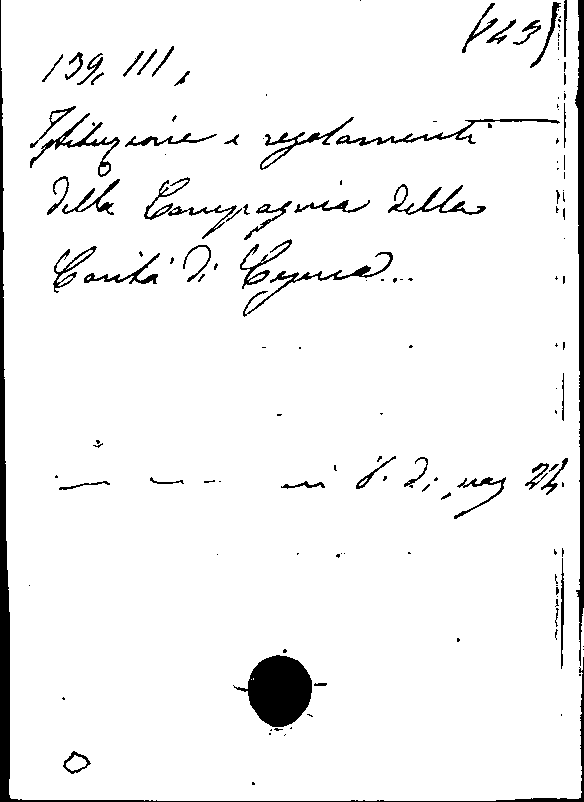 (143)
139, III,
Istituzione e regolamenti
della Compagnia della
Carità di
— — — in 8. di pag 24.